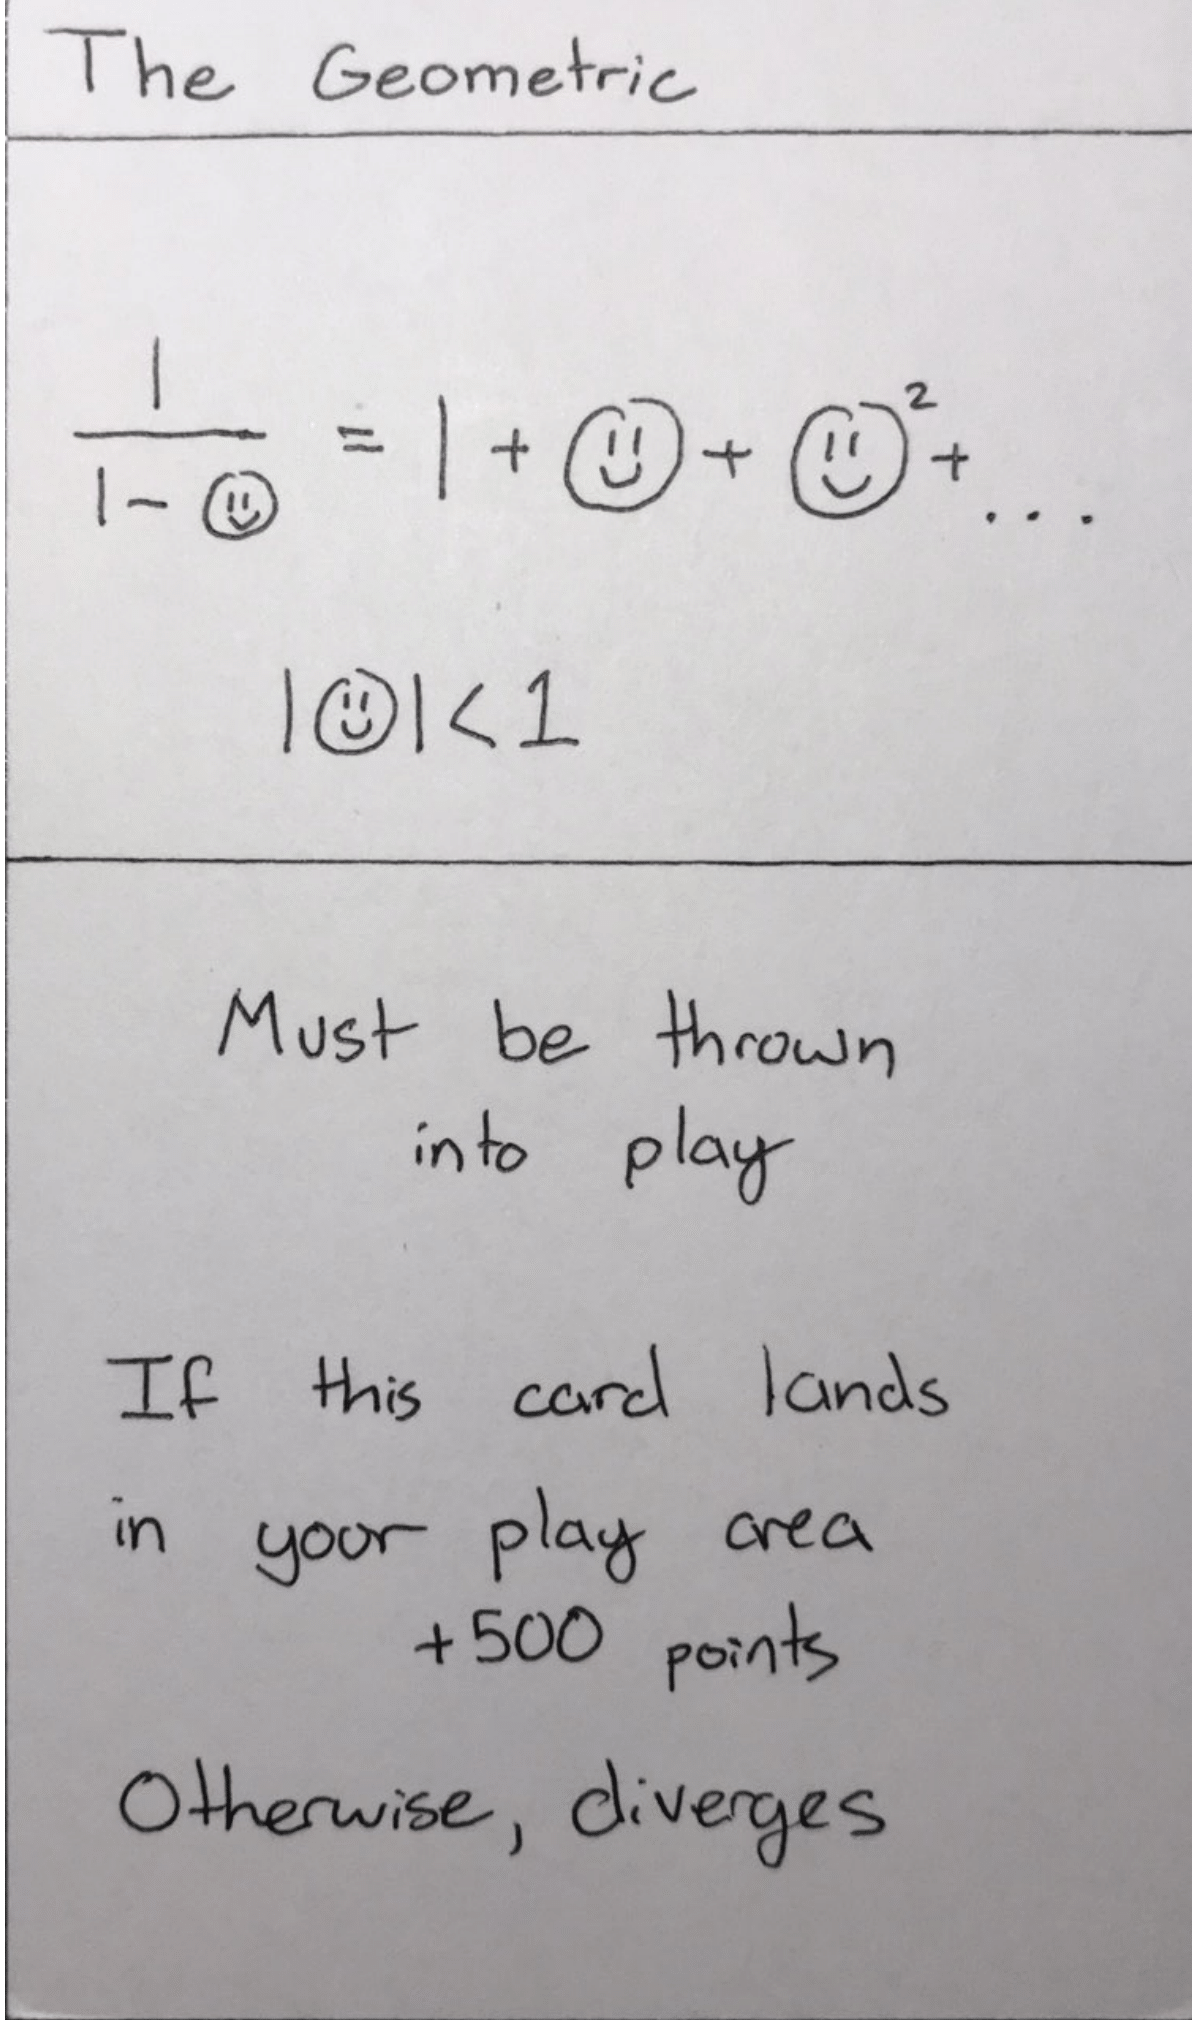 The Geometric
1
1-☺ = 1 + ☺ + ☺² + ...
|☺| < 1
Must be thrown
into play
If this card lands
in your play area
+500 points
Otherwise, diverges